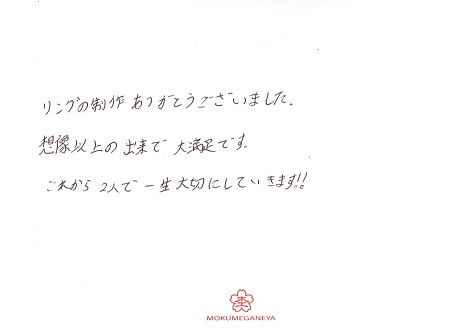 リングの制作ありがとうございました。
想像以上の出来で大満足です。
これから2人で一生大切にしていきます!!
MOKUMEGANEYA